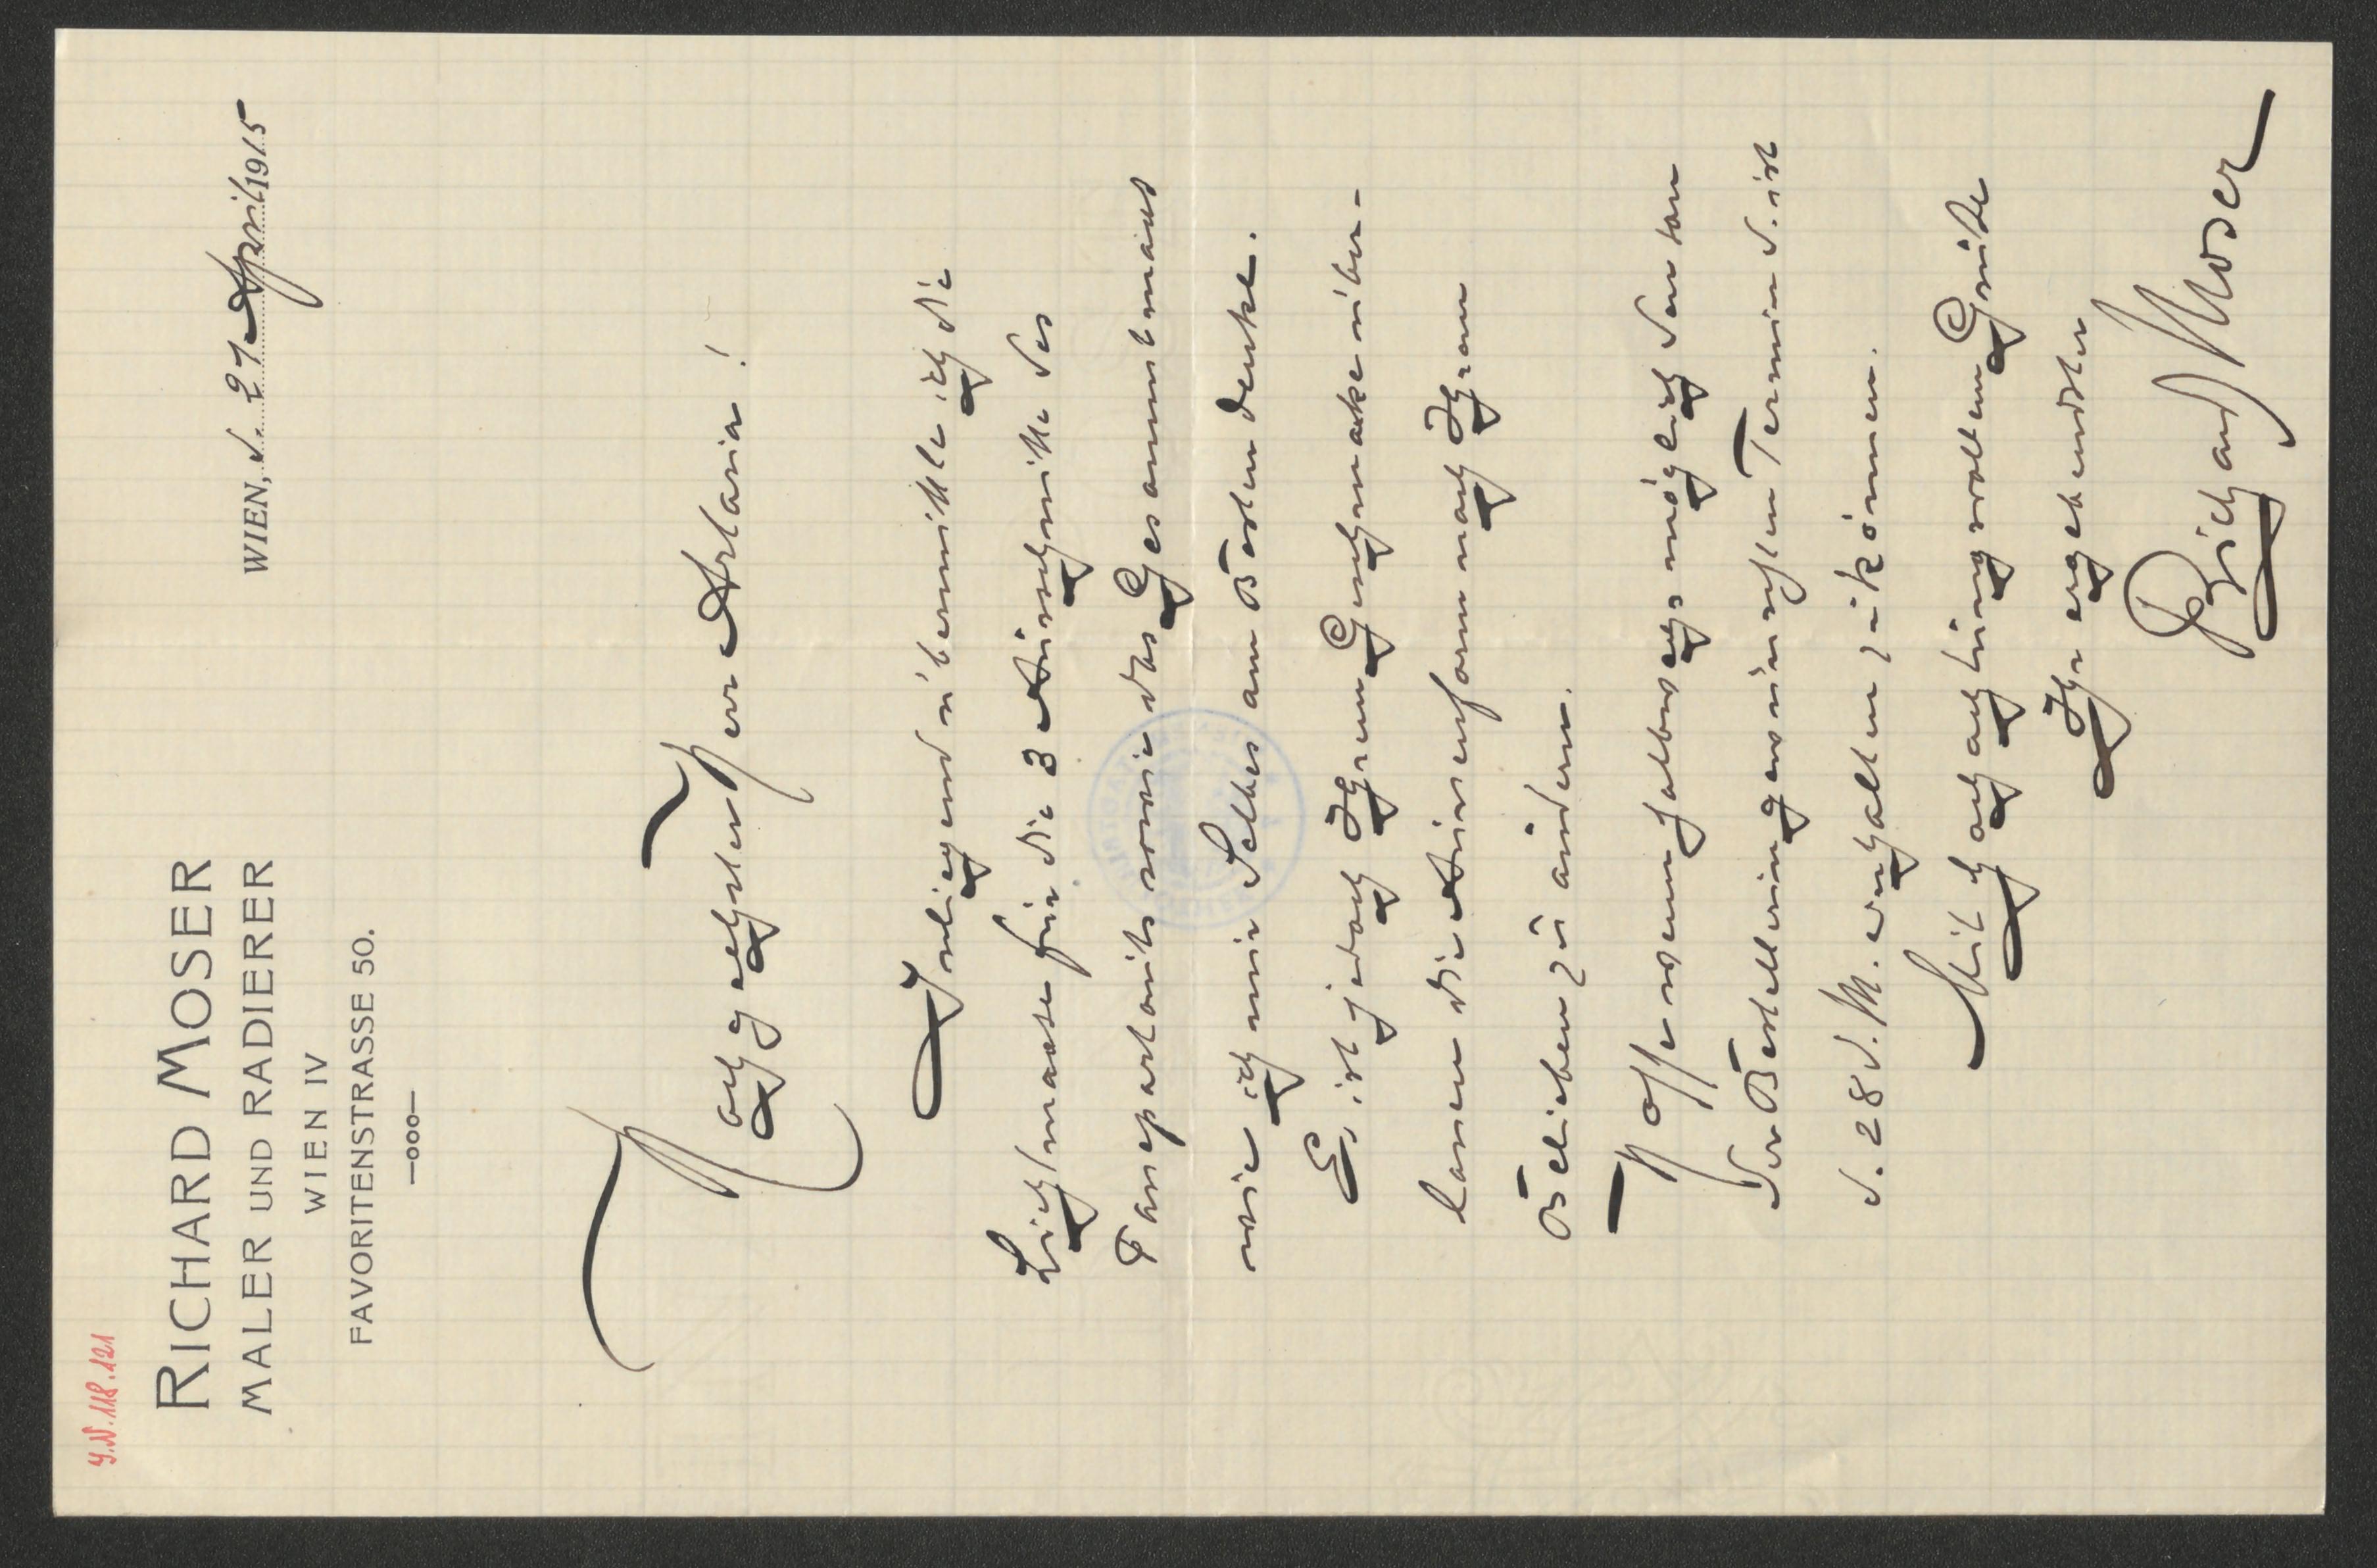 I.N. 118.121
RICHARD MOSER
MALER UND RADIERER
WIEN IV
FAVORITENSTRASSE 50.
WIEN, d. 27 April 1915
Hochgeehrter Herr Artaria!
Inliegend übermittle ich die
Lichtmasse für die 3 Ausschnitte des
Parepartouts sowie das Gesammtmass
wie ich mir Selbes am Besten denke.
Es ist jedoch Ihrem Geschmacke über-
lassen die Aussenform nach Ihrem
Belieben zu ändern.
Hoffe wenn halbwegs möglich den von
der Bestellerin gewünschten Termin d. ist
d. 28 d. M. einhalten zu können.
Mit hochachtungsvollem Gruße
Ihr ergebenster
Richard Moser